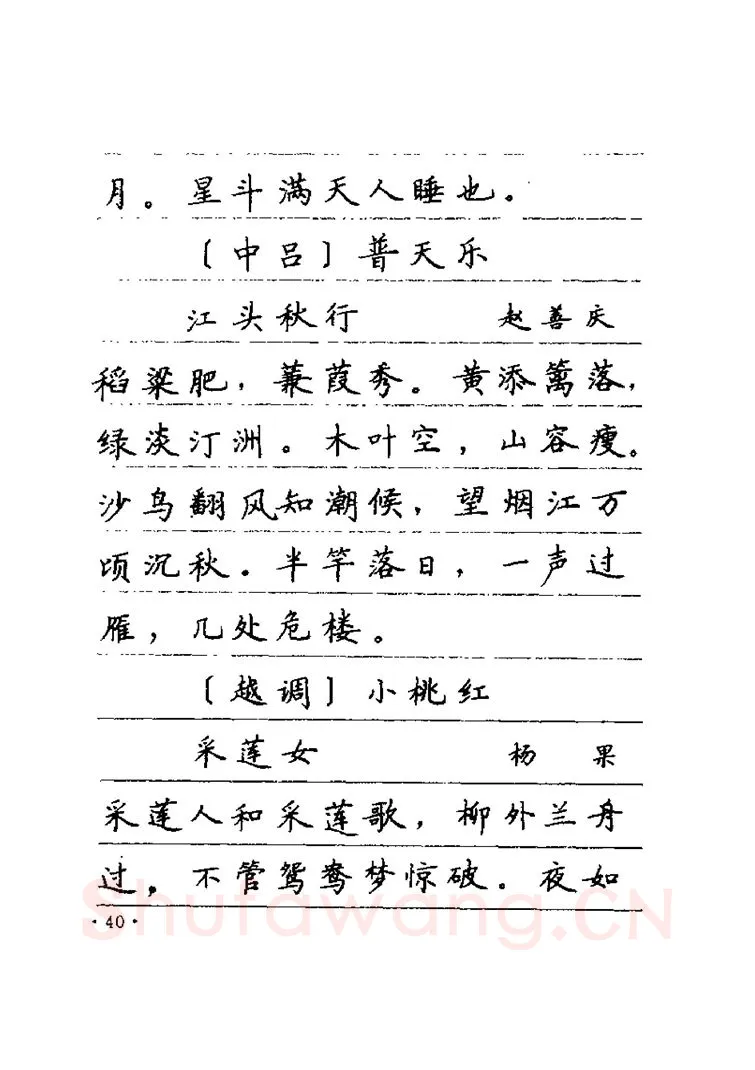 月。星斗满天人睡也。
〔中吕〕普天乐
江头秋行　赵善庆
稻粱肥，蒹葭秀。黄添篱落，
绿淡汀洲。木叶空，山容瘦。
沙鸟翻风知潮候，望烟江万
顷沉秋。半竿落日，一声过
雁，几处危楼。
〔越调〕小桃红
采莲女　杨果
采莲人和采莲歌，柳外兰舟
过，不管鸳鸯梦惊破。夜如
·40·
Shufawang.CN